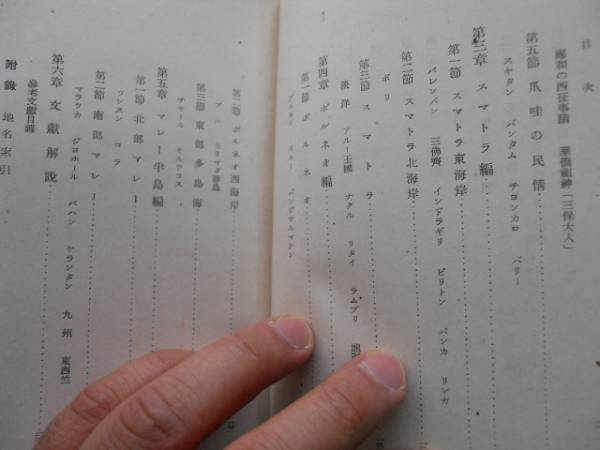 目次
鄭和の西征事蹟 華僑祖神「三保大人」
第五節 爪哇の民情
スキタン バンタム チヨンカロ バリー
第三章 スマトラ編
第一節 スマトラ東海岸
パレンバン 三佛齊 インドラギリ ビリトン バンカ リンガ
第二節 スマトラ北海岸
ボリ
第三節 スマトラ
淡洋 アルー王國 ナクル リタイ ラムブリ
第四章 ボルネオ編
第一節 ボルネオ
ブルネイ スルー バンヂヤルマシン
第二節 ボルネオ西海岸
第三節 東部多島海
チモール モルツコス
第五章 マレー半島編
第一節 北部マレー
ワンスン コラ
第二節 南部マレー
マラツカ ジヨホール パハン ケランタン 九州 東西竺
第六章 文獻解說
參考文獻目錄
附錄 地名索引